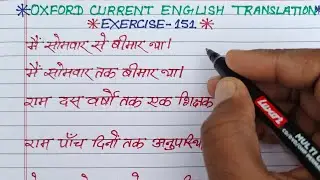 OXFORD CURRENT ENGLISH TRANSLATION
EXERCISE-151
मैं सोमवार से बीमार था।
मैं सोमवार तक बीमार था।
राम दस वर्षों तक एक
राम पाँच दिनों तक
Luxor